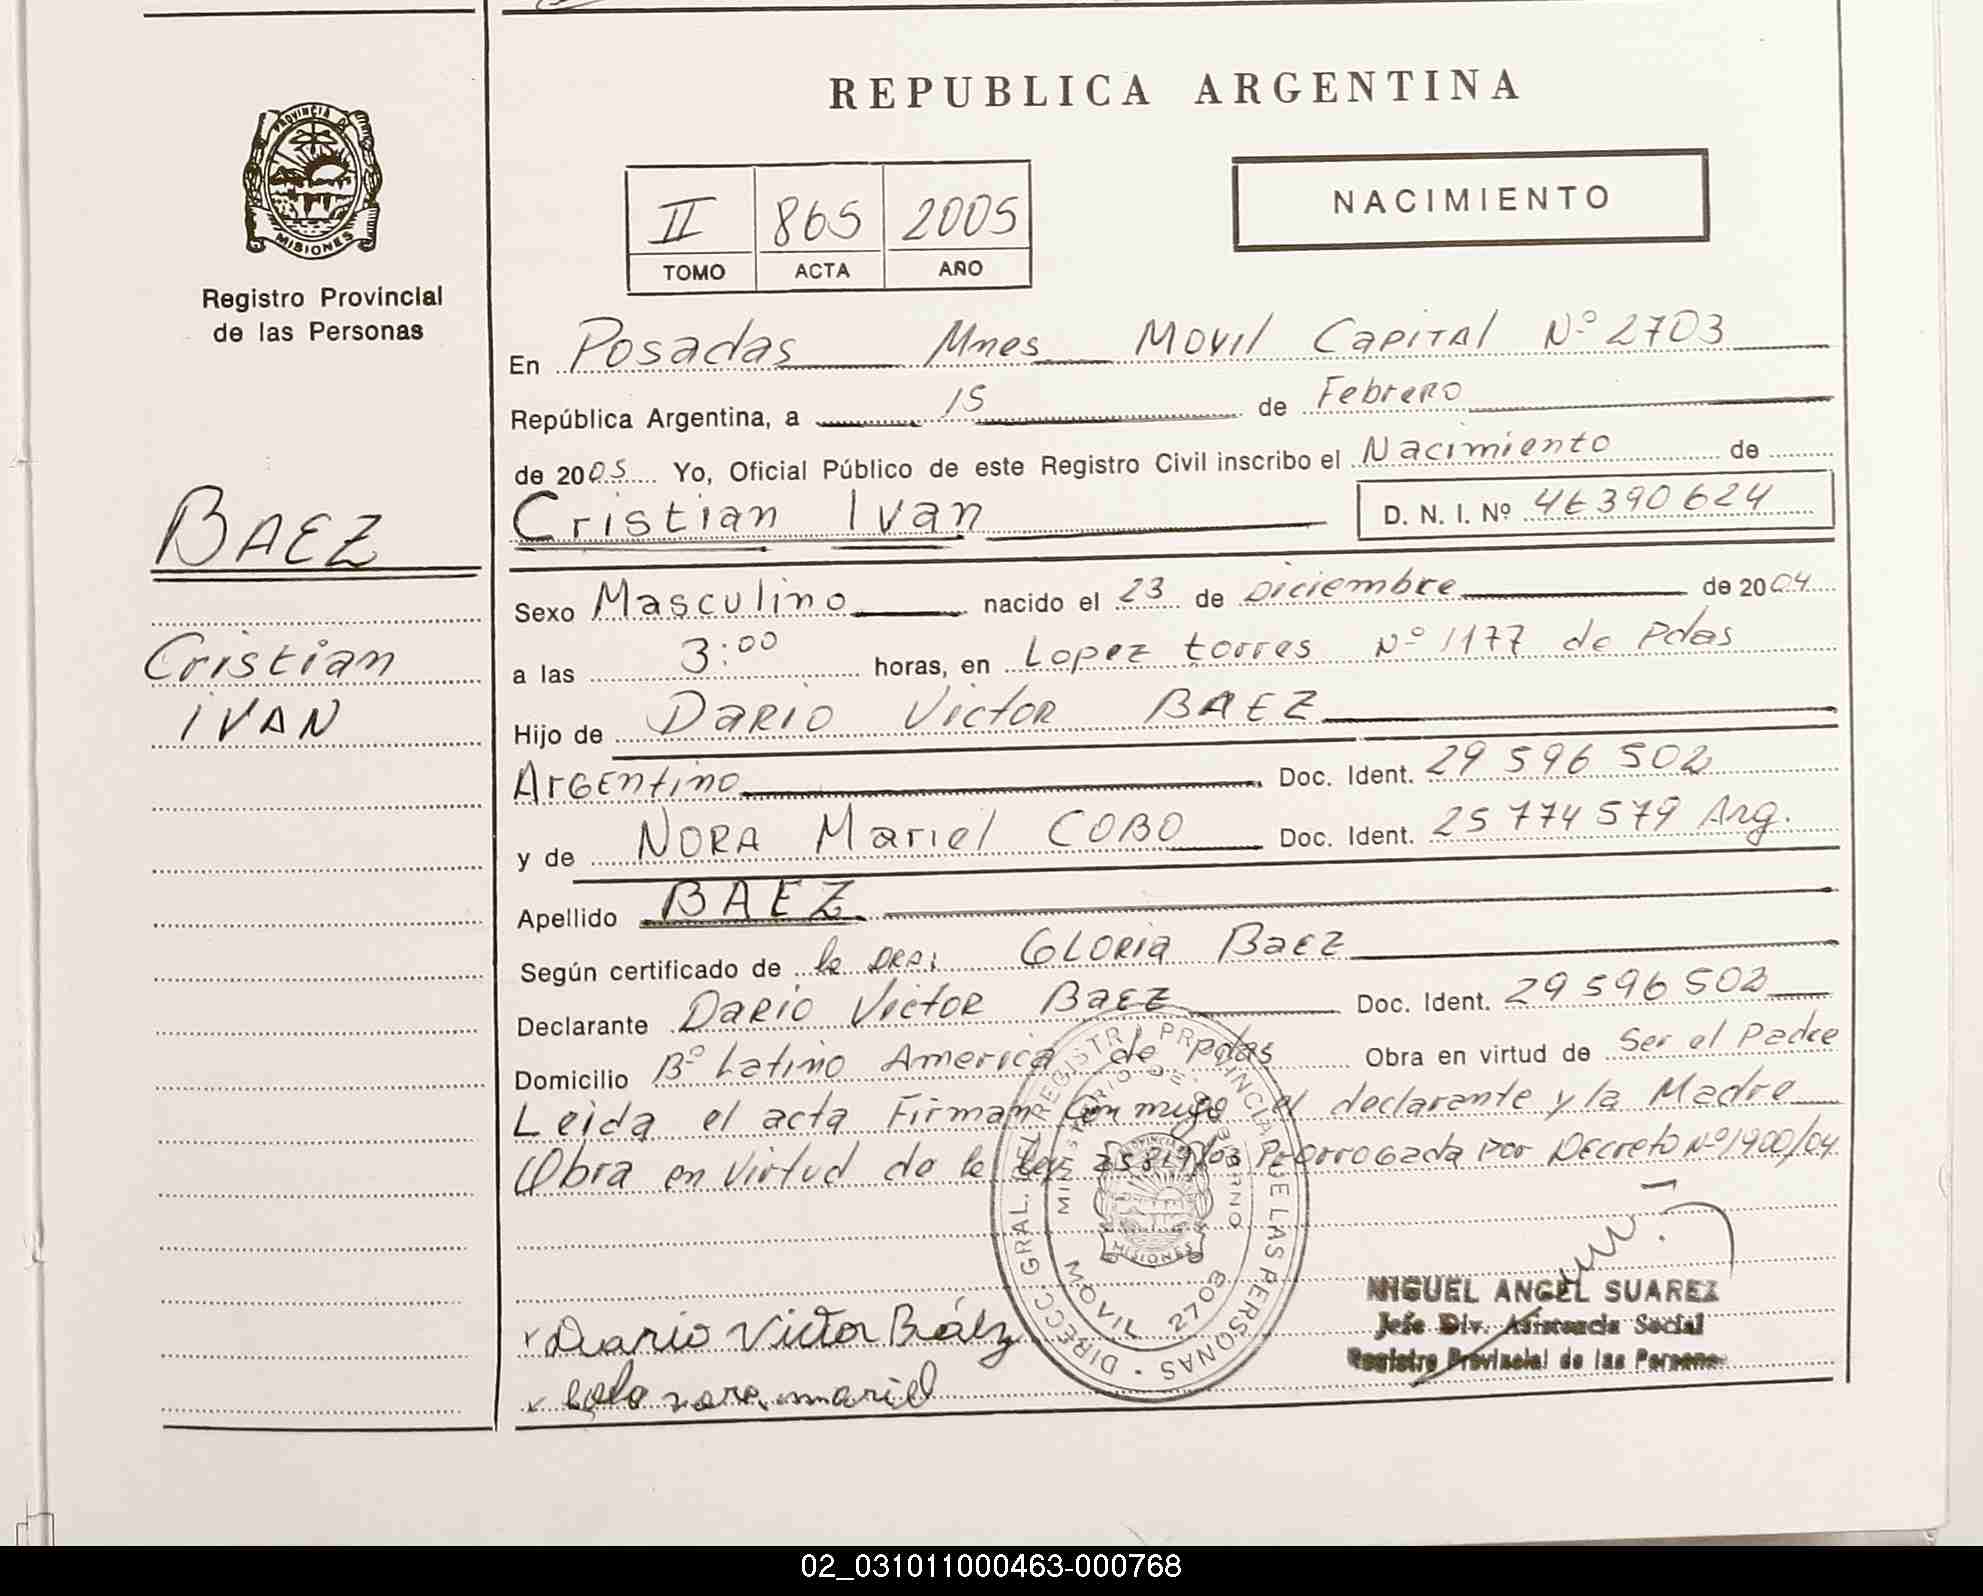 REPUBLICA ARGENTINA
PROVINCIA DE
MISIONES
Registro Provincial
de las Personas
II 865 2005
TOMO ACTA AÑO
NACIMIENTO
BAEZ
Cristian
IVAN
En Posadas Mnes Movil Capital Nº 2703
República Argentina, a 15 de Febrero
de 2005 Yo, Oficial Público de este Registro Civil inscribo el Nacimiento de
Cristian Ivan D. N. I. Nº 46390624
Sexo Masculino nacido el 23 de Diciembre de 2004
a las 3:00 horas, en Lopez torres Nº 1177 de Pdas
Hijo de Dario Victor BAEZ
Argentino Doc. Ident. 29 596 502
y de NORA Mariel COBO Doc. Ident. 25 774 579 Arg.
Apellido BAEZ
Según certificado de la DRA: GLORIA BAEZ
Declarante Dario Victor Baez Doc. Ident. 29 596 502
Domicilio Bº Latino America de Pdas Obra en virtud de Ser el Padre
Leida el acta Firman Conmigo el declarante y la Madre
Obra en Virtud de la Ley 25819/03 Prorrogada por Decreto Nº 1900/04
DIRECC. GRAL. DEL REGISTR PROVINCIAL DE LAS PERSONAS
MINISTERIO DE GOBIERNO
PROVINCIA
MISIONES
MOVIL 2703
MIGUEL ANGEL SUAREZ
Jefe Div. Asistencia Social
Registro Provincial de las Personas
Dario Victor Báez
Cobo nora mariel
02_031011000463-000768